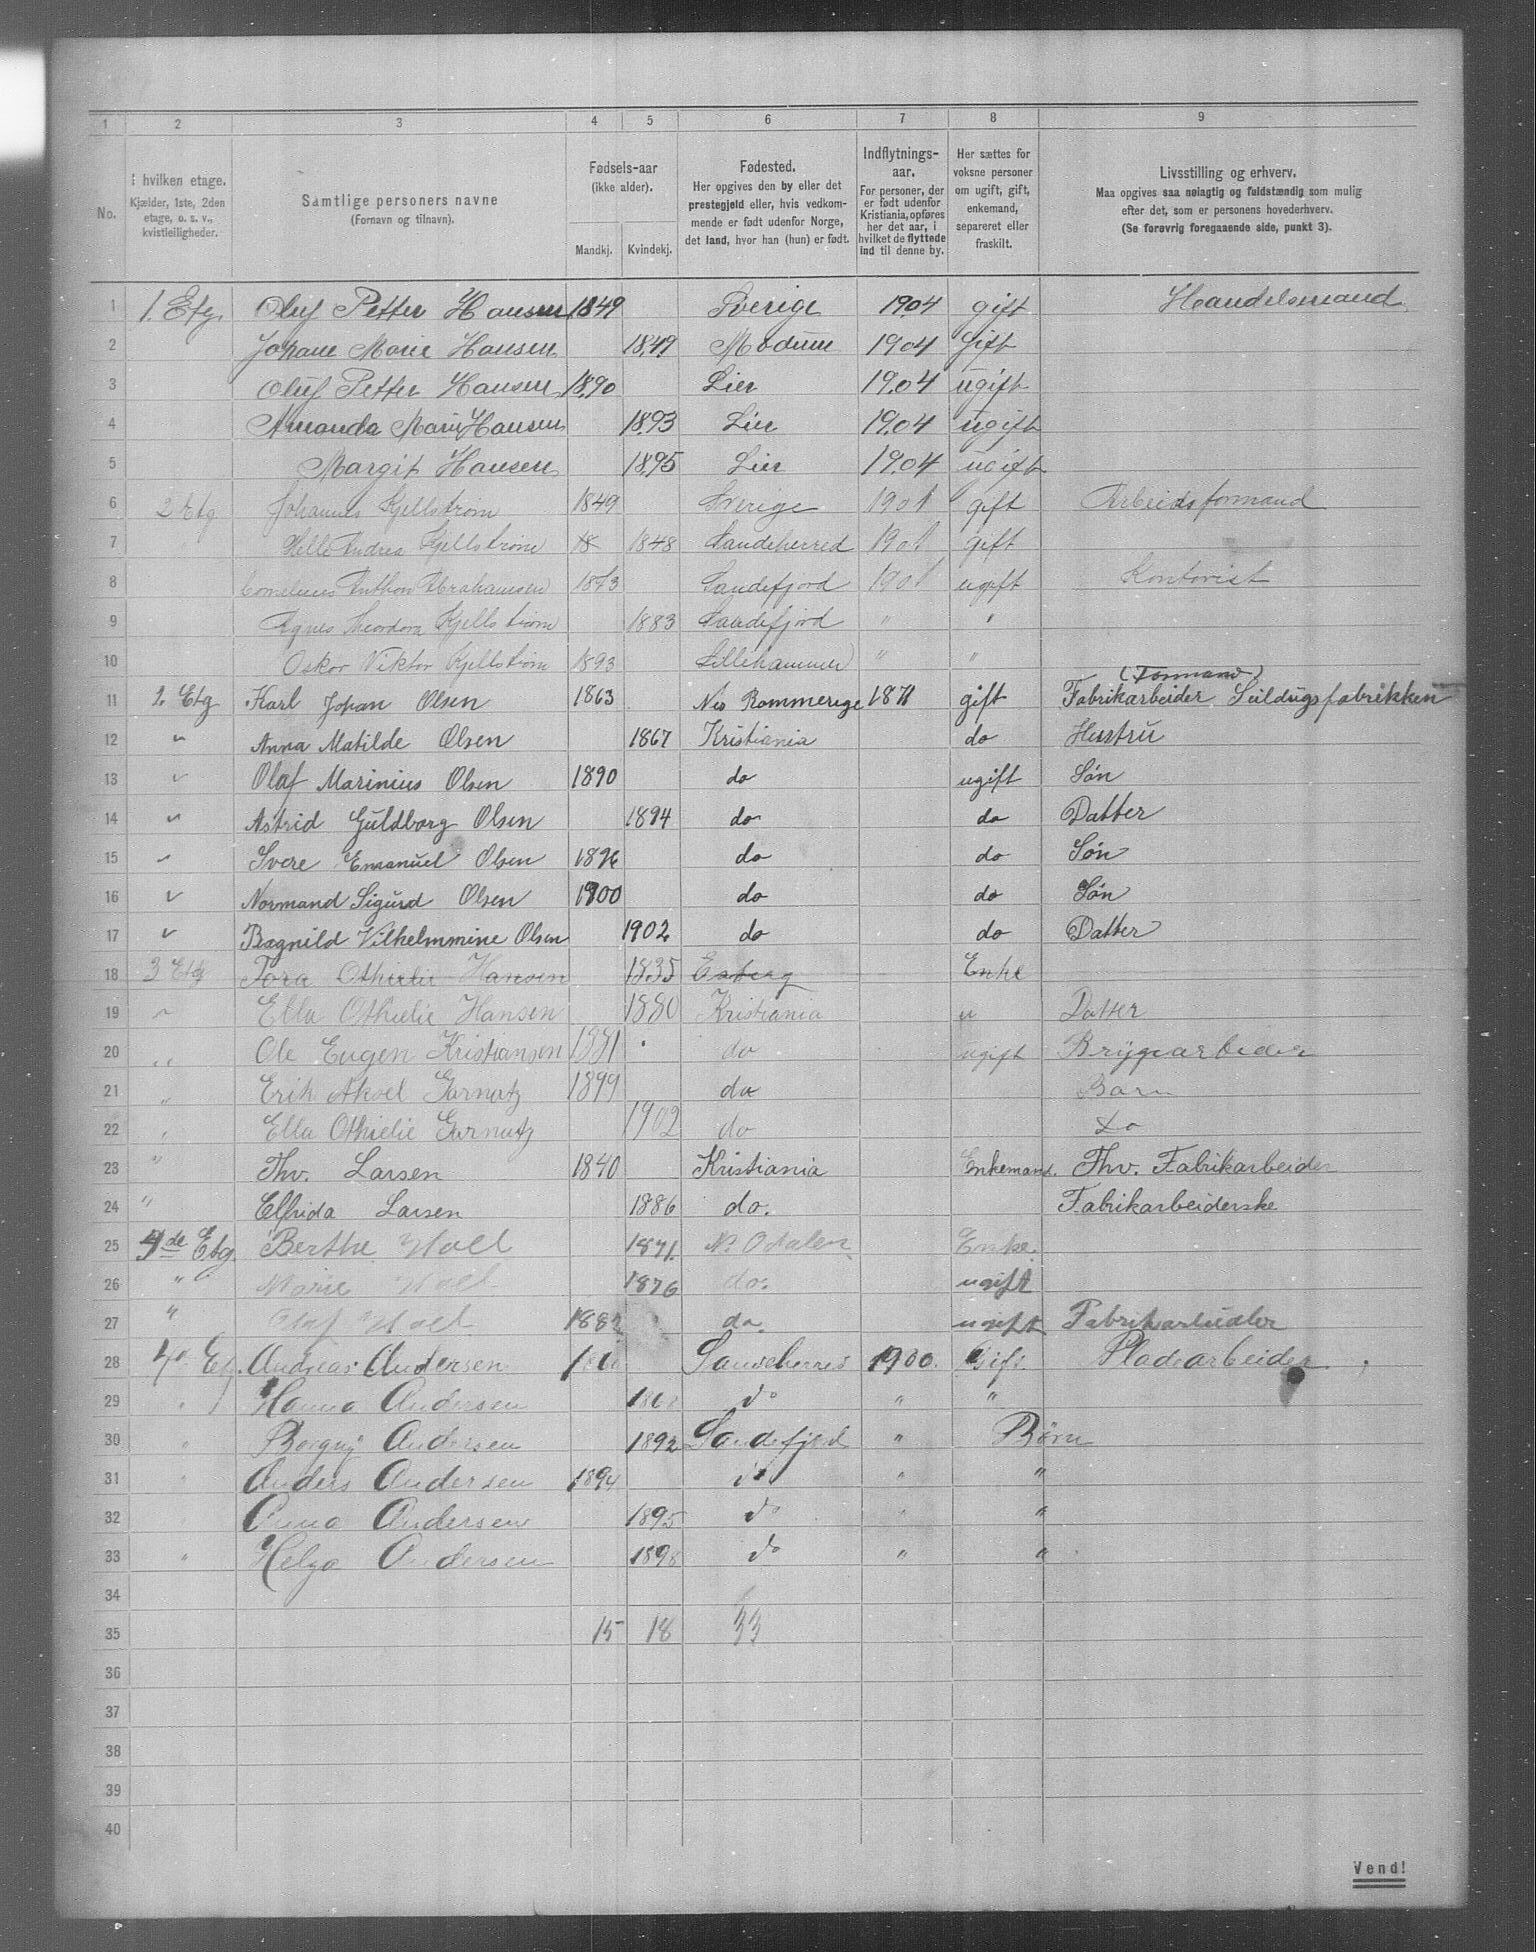 1 2 3 4 5 6 7 8 9
No.
I hvilken etage.
Kjælder, 1ste, 2den
etage, o. s. v.,
kvistleiligheder.
Samtlige personers navne
(Fornavn og tilnavn).
Fødsels-aar
(ikke alder).
Mandkj. Kvindekj.
Fødested.
Her opgives den by eller det
prestegjeld eller, hvis vedkom-
mende er født udenfor Norge,
det land, hvor han (hun) er født.
Indflytnings-
aar.
For personer, der
er født udenfor
Kristiania, opføres
her det aar, i
hvilket de flyttede
ind til denne by.
Her sættes for
voksne personer
om ugift, gift,
enkemand,
separeret eller
fraskilt.
Livsstilling og erhverv.
Maa opgives saa nøiagtig og fuldstændig som mulig
efter det, som er personens hovederhverv.
(Se forøvrig foregaaende side, punkt 3).
1 1. Etg. Oluf Petter Hansen 1849 Sverige 1904 gift Handelsmand
2 Johane Marie Hansen 1849 Modum 1904 Gift
3 Oluf Petter Hansen 1890 Lier 1904 ugift
4 Amanda Marie Hansen 1893 Lier 1904 ugift
5 Margit Hansen 1895 Lier 1904 ugift
6 2 Etg Johannes Kjellstrøm 1849 Sverige 1901 gift Arbeidsformand
7 Helle Andrea Kjellstrøm 18 1848 Sandeherred 1901 gift
8 Cornelius Anthon Abrahamsen 1873 Sandefjord 1901 ugift Kontorist
9 Agnes Theodora Kjellstrøm 1883 Sandefjord " "
10 Oskar Viktor Kjellstrøm 1893 Lillehammer " "
(Formand)
11 2 Etg Karl Johan Olsen 1863 Nes Rommerige 1871 gift Fabrikarbeider Seildugsfabrikken
12 " Anna Matilde Olsen 1867 Kristiania do Hustru
13 " Olaf Marinius Olsen 1890 do ugift Søn
14 " Astrid Guldborg Olsen 1894 do do Datter
15 " Svere Emanuel Olsen 1896 do do Søn
16 " Normand Sigurd Olsen 1900 do do Søn
17 " Ragnild Vilhelmmine Olsen 1902 do do Datter
18 3 Etg Tora Othielie Hansen 1835 Esberg Enke
19 " Ella Othielie Hansen 1880 Kristiania u Datter
20 " Ole Eugen Kristiansen 1881 do ugift Bryggearbeider
21 " Erik Aksel Garnatz 1899 do Barn
22 " Ella Othielie Garnatz 1902 do do
23 " Thv. Larsen 1840 Kristiania Enkemand. Thv. Fabrikarbeider
24 " Elfrida Larsen 1886 do. Fabrikarbeiderske
25 4de Etg. Berthe Holt 1871. N. Odalen Enke.
26 " Marie Holt 1876 do. ugift
27 " Olaf Holt 1882 do. ugift Fabrikarbeider
28 4de Etg. Andreas Andersen Sandeherred 1900. Gift Pladsarbeider
29 " Hanna Andersen do " "
30 " Borgny Andersen 1892 Sandefjord " Børn
31 " Anders Andersen 1894 do " "
32 " Anna Andersen 1895 do " "
33 " Helga Andersen 1898 do " "
34
35 15 18 33
36
37
38
39
40
Vend!